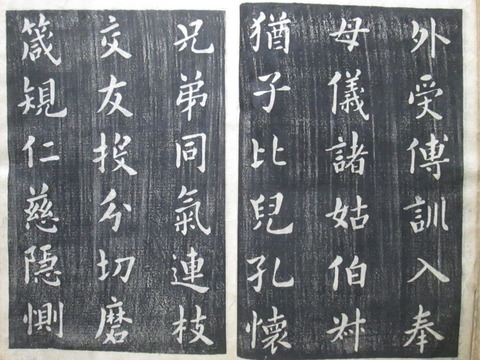 外受傅訓入奉
母儀諸姑伯叔
猶子比兒孔懷
兄弟同氣連枝
交友投分切磨
箴規仁慈隱惻